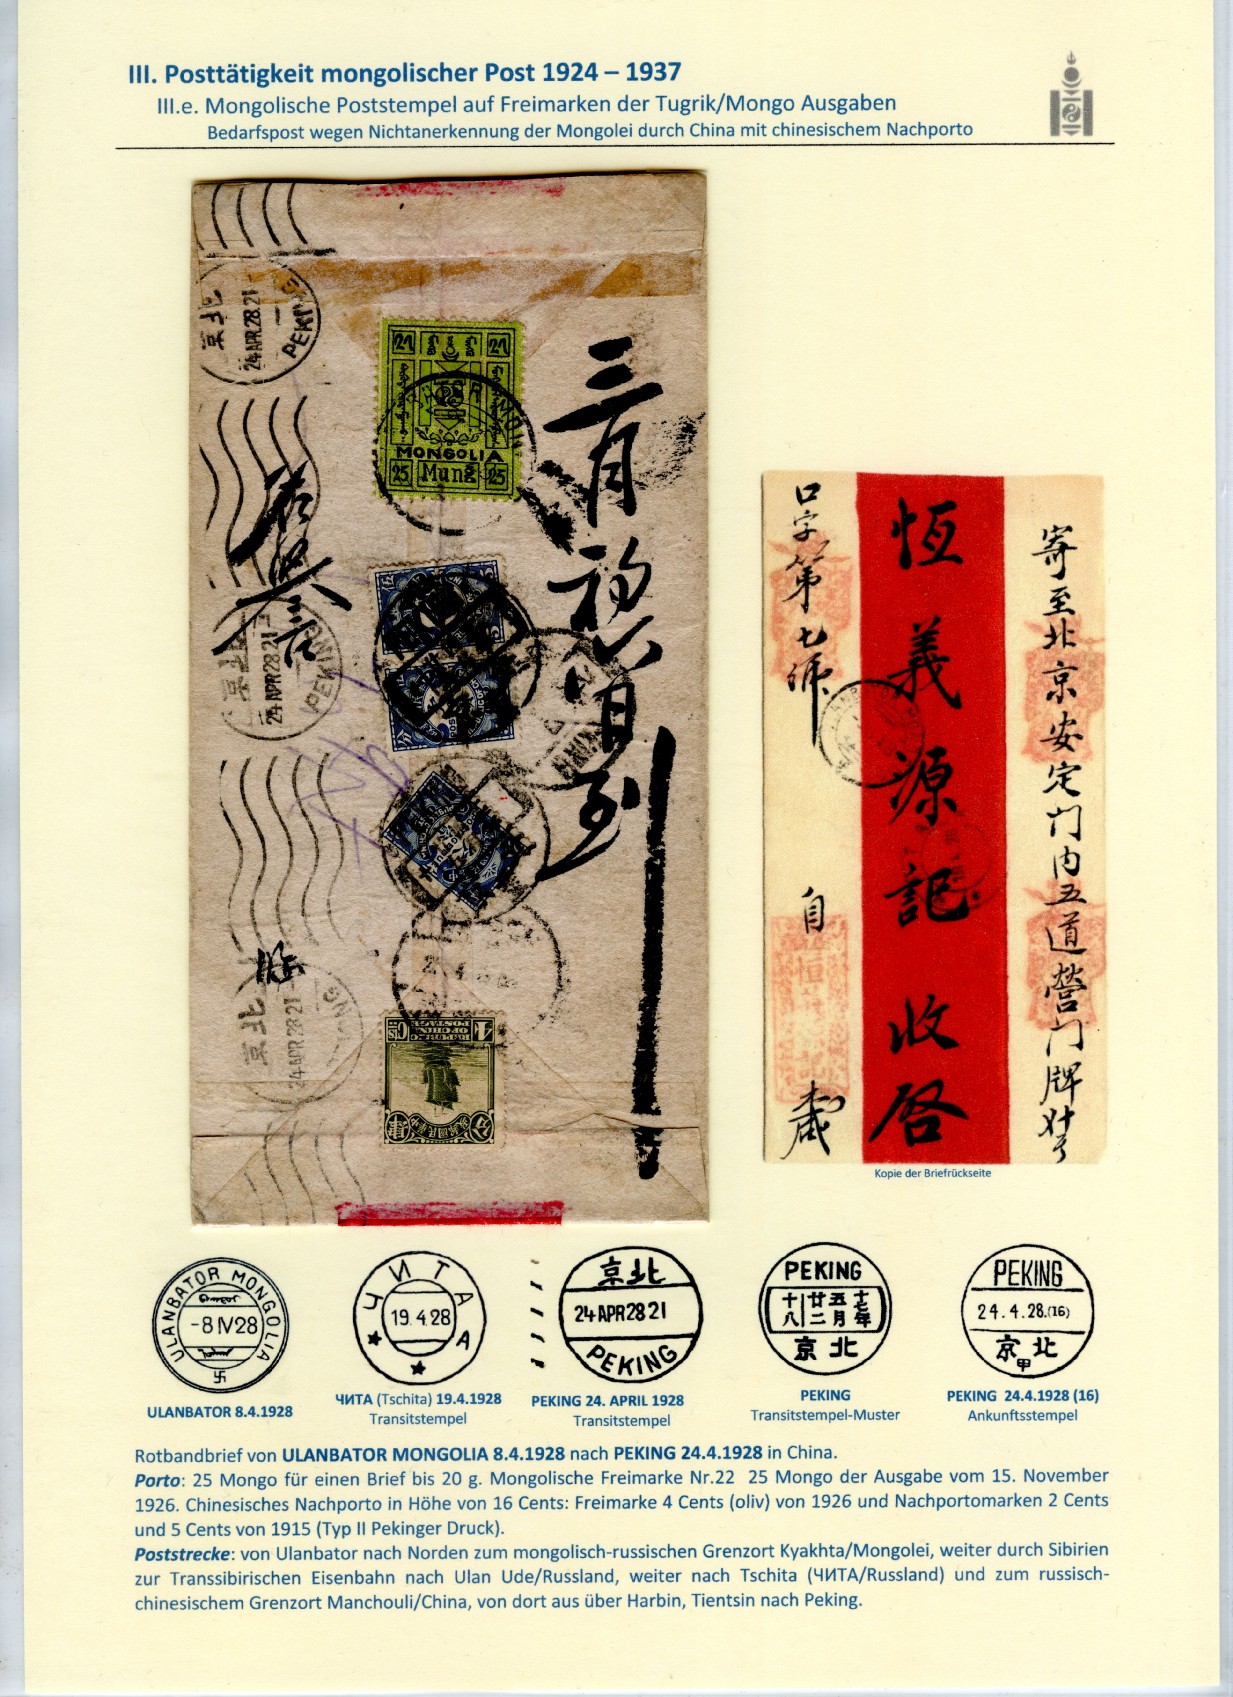 III. Posttätigkeit mongolischer Post 1924 – 1937
III.e. Mongolische Poststempel auf Freimarken der Tugrik/Mongo Ausgaben
Bedarfspost wegen Nichtanerkennung der Mongolei durch China mit chinesischem Nachporto
京北
24 APR 28 21
PEKING
MONGOLIA
25 Mung 25
三月初六日到
京北
24 APR 28 21
PEKING
京北
24 APR 28 21
4
寄至北京安定门内五道營门牌
恆義源記收啓
口字第七號
自
Kopie der Briefrückseite
ULANBATOR MONGOLIA
-8 IV 28
卐
ЧИТА
19.4.28
京北
24 APR 28 21
PEKING
PEKING
十八 廿二 五月 十七年
京北
PEKING
24.4.28.(16)
京北
甲
ULANBATOR 8.4.1928
ЧИТА (Tschita) 19.4.1928
Transitstempel
PEKING 24. APRIL 1928
Transitstempel
PEKING
Transitstempel-Muster
PEKING 24.4.1928 (16)
Ankunftsstempel
Rotbandbrief von ULANBATOR MONGOLIA 8.4.1928 nach PEKING 24.4.1928 in China.
Porto: 25 Mongo für einen Brief bis 20 g. Mongolische Freimarke Nr.22 25 Mongo der Ausgabe vom 15. November
1926. Chinesisches Nachporto in Höhe von 16 Cents: Freimarke 4 Cents (oliv) von 1926 und Nachportomarken 2 Cents
und 5 Cents von 1915 (Typ II Pekinger Druck).
Poststrecke: von Ulanbator nach Norden zum mongolisch-russischen Grenzort Kyakhta/Mongolei, weiter durch Sibirien
zur Transsibirischen Eisenbahn nach Ulan Ude/Russland, weiter nach Tschita (ЧИТА/Russland) und zum russisch-
chinesischem Grenzort Manchouli/China, von dort aus über Harbin, Tientsin nach Peking.